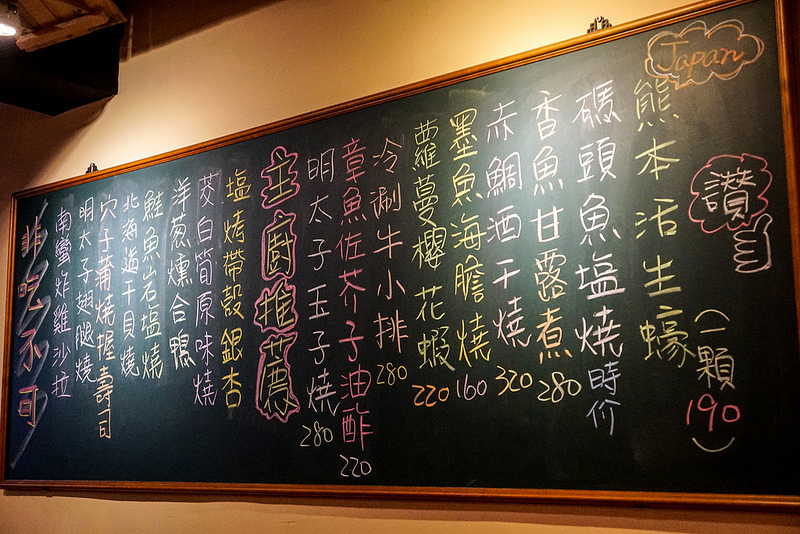 Japan
讚
熊本活生蠔
(一顆190)
碼頭魚塩燒時价
香魚甘露煮280
赤鯛酒干燒320
墨魚海膽燒160
蘿蔓櫻花蝦220
冷涮牛小排280
章魚佐芥子油酢220
明太子玉子燒280
主廚推薦
塩烤帶殼銀杏
茭白筍原味燒
洋蔥燻合鴨
鮭魚岩塩燒
北海道干貝燒
穴子蒲燒握壽司
明太子翅腿燒
南蠻炸雞沙拉
非吃不可